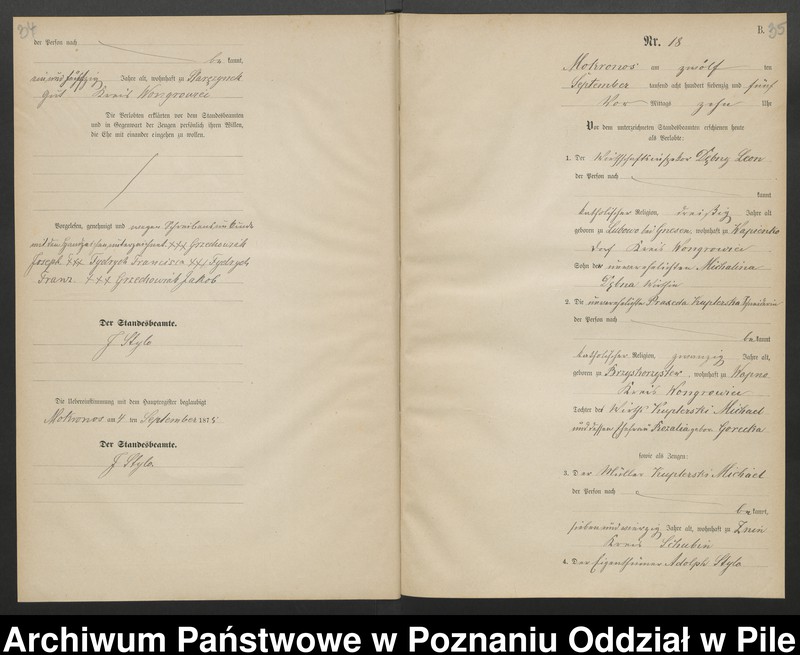 34
der Person nach
be kannt,
ein und fünfzig Jahre alt, wohnhaft zu
Gut Kreis Wongrowiec
Die Verlobten erklärten vor dem Standesbeamten
und in Gegenwart der Zeugen persönlich ihren Willen,
die Ehe mit einander eingehen zu wollen.
Vorgelesen, genehmigt und wegen Schreibensunkunde
mit den Handzeichen unterzeichnet. xxx Grzechowiak
Joseph xxx Tydrych Francisca xxx Tydrych
Franz xxx Grzechowiak Jakob
Der Standesbeamte.
J Stylo
Die Uebereinstimmung mit dem Hauptregister beglaubigt
Mokronos am 4. ten September 1875
Der Standesbeamte.
J Stylo.
B. 35
Nr. 18
Mokronos am zwölf ten
September tausend acht hundert siebenzig und fünf
Vor Mittags zehn Uhr
Vor dem unterzeichneten Standesbeamten erschienen heute
als Verlobte:
1. Der Wirthschaftsinspektor Dębny Leon
der Person nach
kannt
katholischer Religion, dreißig Jahre alt
geboren zu Lubowo bei Gnesen, wohnhaft zu
Dorf Kreis Wongrowiec
Sohn der unverehelichten Michalina
Dębna Wirthin
2. Die unverehelichte Praxeda Kuplerska
der Person nach
be kannt
katholischer Religion, zwanzig Jahre alt,
geboren zu Brzyskorzystew, wohnhaft zu Wapno
Kreis Wongrowiec
Tochter des Wirth Kuplerski Michael
und dessen Ehefrau Rozalia geborn. Gorecka
sowie als Zeugen:
3. Der Müller Kuplerski Michael
der Person nach
be kannt,
sieben und vierzig Jahre alt, wohnhaft zu Znin
Kreis Schubin
4. Der Eigenthümer Adolph Stylo
Archiwum Państwowe w Poznaniu Oddział w Pile